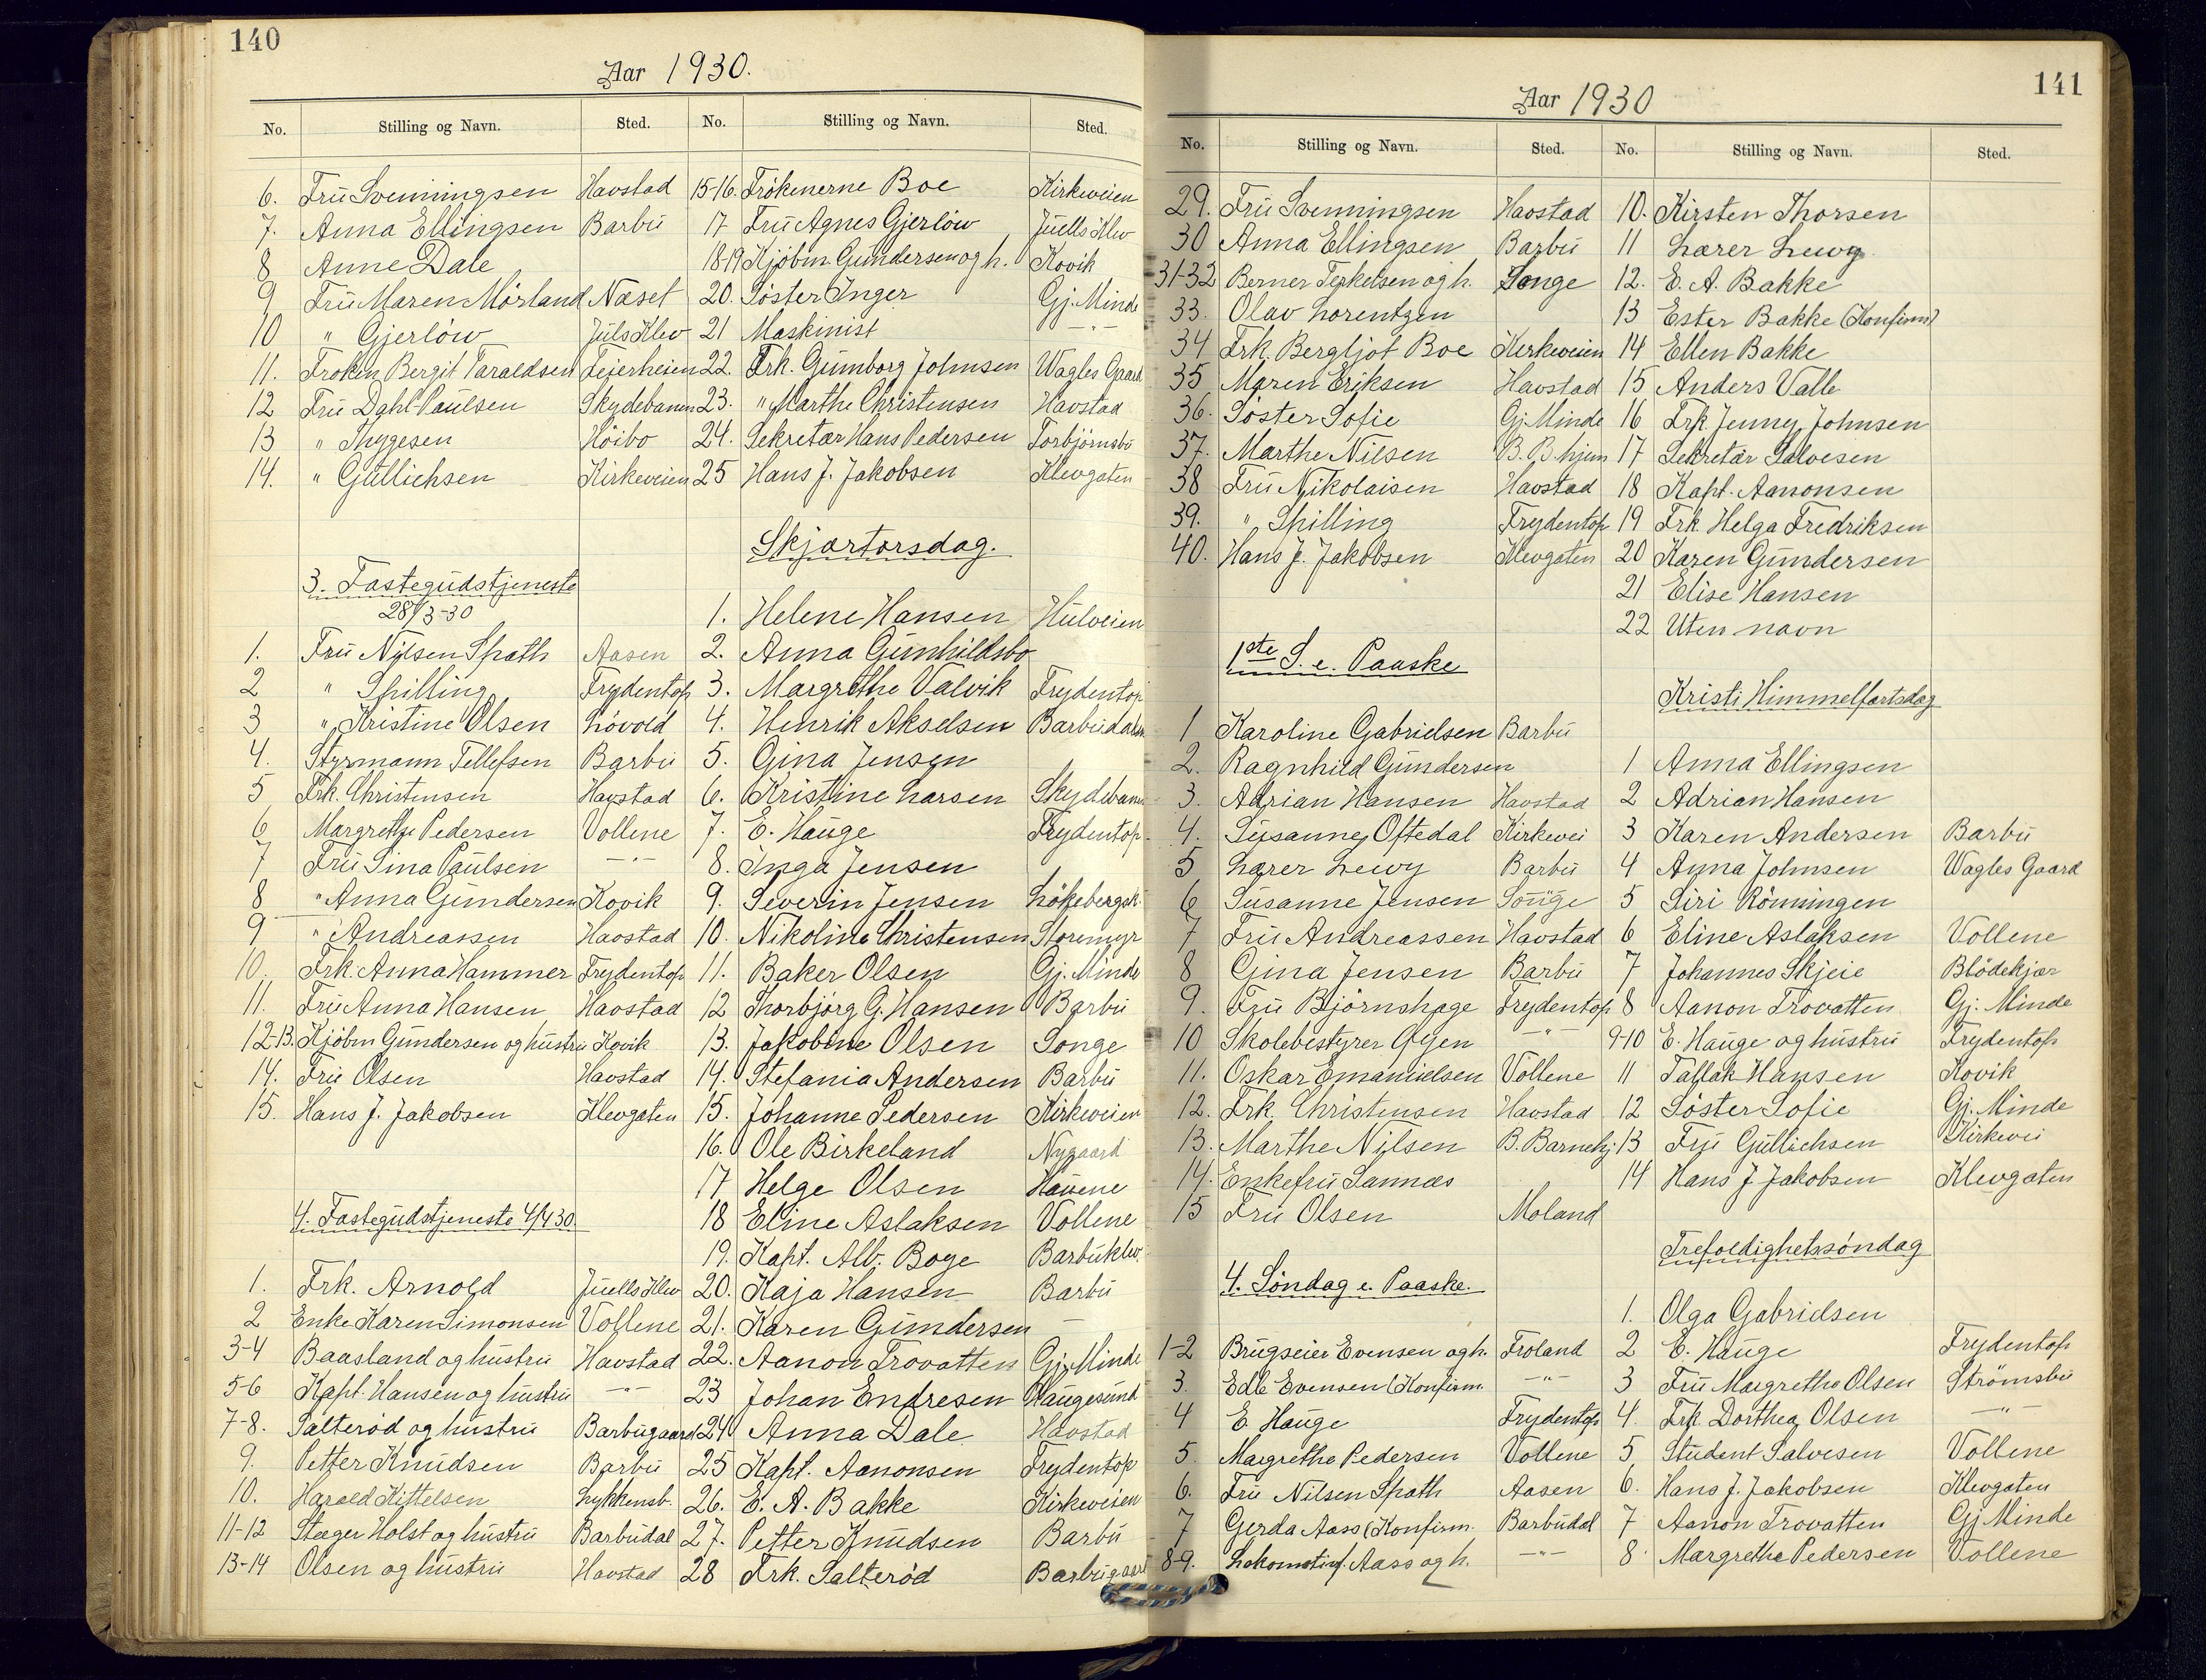 140
Aar 1930.
No. Stilling og Navn. Sted.
6. Fru Svenningsen Havstad
7. Anna Ellingsen Barbu
8 Anne Dale
9 Fru Maren Mörland Næset
10 " Gjerlöw Juls Klev
11. Fröken Bergit Taraldsen Feierheien
12 Fru Dahl-Paulsen Skydebanen
13 " Thygesen Höibo
14. " Gullichsen Kirkeveien
3. Fastegudstjeneste
28/3-30
1. Fru Nilsen Spath Aasen
2 " Spilling Frydentop
3 " Kristine Olsen Lövold
4. Styrmann Tellefsen Barbu
5 Frk. Christensen Havstad
6 Margrethe Pedersen Vollene
7 Fru Sina Paulsen —"—
8 " Anna Gundersen Kovik
9 " Andreassen Havstad
10. Frk. Anna Hammer Frydentop
11. Fru Anna Hansen Havstad
12-13. Kjöbm Gundersen og hustru Kovik
14. Fru Olsen Havstad
15. Hans J. Jakobsen Klevgaten
4. Fastegudstjeneste 4/4 30.
1. Frk. Arnold Juells Klev
2 Enke Karen Simonsen Vollene
3-4 Baasland og hustru Havstad
5-6 Kapt. Hansen og hustru —"—
7-8. Salteröd og hustru Barbugaard
9. Petter Knudsen Barbu
10. Harald Kittelsen Lykkensb.
11-12 Stæger Holst og hustru Barbudal
13-14 Olsen og hustru Havstad
No. Stilling og Navn. Sted.
15-16. Frökenerne Boe Kirkeveien
17 Fru Agnes Gjerlöw Juells Klev
18-19 Kjöbm. Gundersen og h. Kovik
20. Söster Inger Gj. Minde
21 Maskinist —"—
22. Frk. Gunborg Johnsen Wagles Gaard
23. " Marthe Christensen Havstad
24. Sekretær Hans Pedersen Torbjörnsbu
25 Hans J. Jakobsen Klevgaten
Skjærtorsdag.
1. Helene Hansen Hulveien
2. Anna Gunhildsbo
3. Margrethe Valvik Frydentop
4. Henrik Akselsen Barbudalen
5. Gina Jensen
6. Kristine Larsen Skydebanen
7. E. Hauge Frydentop.
8. Inga Jensen
9. Severin Jensen Lökebergsk.
10. Nikoline Christensen Storemyr
11. Baker Olsen Gj. Minde
12 Thorbjörg G. Hansen Barbu
13. Jakobine Olsen Songe
14. Stefania Andersen Barbu
15. Johanne Pedersen Kirkeveien
16. Ole Birkeland Nygaard
17 Helge Olsen Hauene
18 Eline Aslaksen Vollene
19. Kapt. Alb. Boye Barbuklev.
20. Kaja Hansen Barbu
21. Karen Gundersen —
22. Aanon Trovatten Gj. Minde
23 Johan Endresen Haugesund
24 Anna Dale Havstad
25 Kapt. Aanonsen Frydentop
26. E. A. Bakke Kirkeveien
27. Petter Knudsen Barbu
28 Frk. Salteröd Barbugaard
141
Aar 1930
No. Stilling og Navn. Sted.
29. Fru Svenningsen Havstad
30 Anna Ellingsen Barbu
31-32 Berner Terkelsen og h. Songe
33. Olav Lorentzen
34 Frk. Bergljot Boe Kirkeveien
35 Maren Eriksen Havstad
36. Söster Sofie Gj. Minde
37. Marthe Nilsen B. B. hjem
38 Fru Nikolaisen Havstad
39. " Spilling Frydentop
40. Hans J. Jakobsen Klevgaten
1ste S. e. Paaske
1 Karoline Gabrielsen Barbu
2. Ragnhild Gundersen
3. Adrian Hansen Havstad
4. Susanne Oftedal Kirkevei
5 Lærer Lewy Barbu
6 Susanne Jensen Songe
7 Fru Andreassen Havstad
8 Gina Jensen Barbu
9. Fru Björnshage Frydentop
10 Skolebestyrer Öyen —"—
11. Oskar Emanuelsen Vollene
12. Frk. Christensen Havstad
13. Marthe Nilsen B. Barnehj.
14. Enkefru Sannæs
15 Fru Olsen Moland
4. Söndag e. Paaske.
1-2 Brugseier Evensen og h. Froland
3. Edle Evensen (Konfirm. —"—
4 E. Hauge Frydentop
5. Margrethe Pedersen Vollene
6. Fru Nilsen Spath Aasen
7 Gerda Aass (Konfirm. Barbudal
8-9. Lokomotivf. Aass og h. —"—
No. Stilling og Navn. Sted.
10. Kirsten Thorsen
11 Lærer Lewy
12. E. A. Bakke
13 Ester Bakke (Konfirm)
14 Ellen Bakke
15 Anders Valle
16 Frk Jenny Johnsen
17 Sekretær Salvesen
18 Kapt. Aanonsen
19 Frk. Helga Fredriksen
20 Karen Gundersen
21 Elise Hansen
22 Uten navn
Kristi Himmelfartsdag
1 Anna Ellingsen
2 Adrian Hansen
3 Karen Andersen Barbu
4 Anna Johnsen Wagles Gaard
5 Siri Rönningen
6 Eline Aslaksen Vollene
7 Johannes Skjeie Blödekjær
8 Aanon Trovatten Gj. Minde
9-10 E. Hauge og hustru Frydentop
11 Tallak Hansen Kovik
12 Söster Sofie Gj. Minde
13 Fru Gullichsen Kirkevei
14 Hans J Jakobsen Klevgaten
Trefoldighetssöndag
1. Olga Gabrielsen
2 E. Hauge Frydentop
3 Fru Margrethe Olsen Strömsbu
4. Frk. Dorthea Olsen —"—
5 Student Salvesen Vollene
6. Hans J. Jakobsen Klevgaten
7 Aanon Trovatten Gj Minde
8. Margrethe Pedersen Vollene